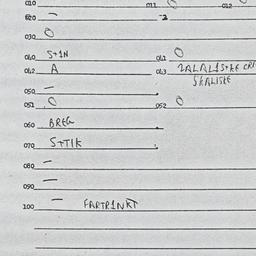 010 — 011 O 012 O
020 — -2
030 O
040 S+1N 041 O
042 A 043 ZALAL1S+KE CRI
SKALISKE
050 —
051 O 052 O
060 BREG
070 S+TIK
080 —
090 —
100 — FARTR1NKT